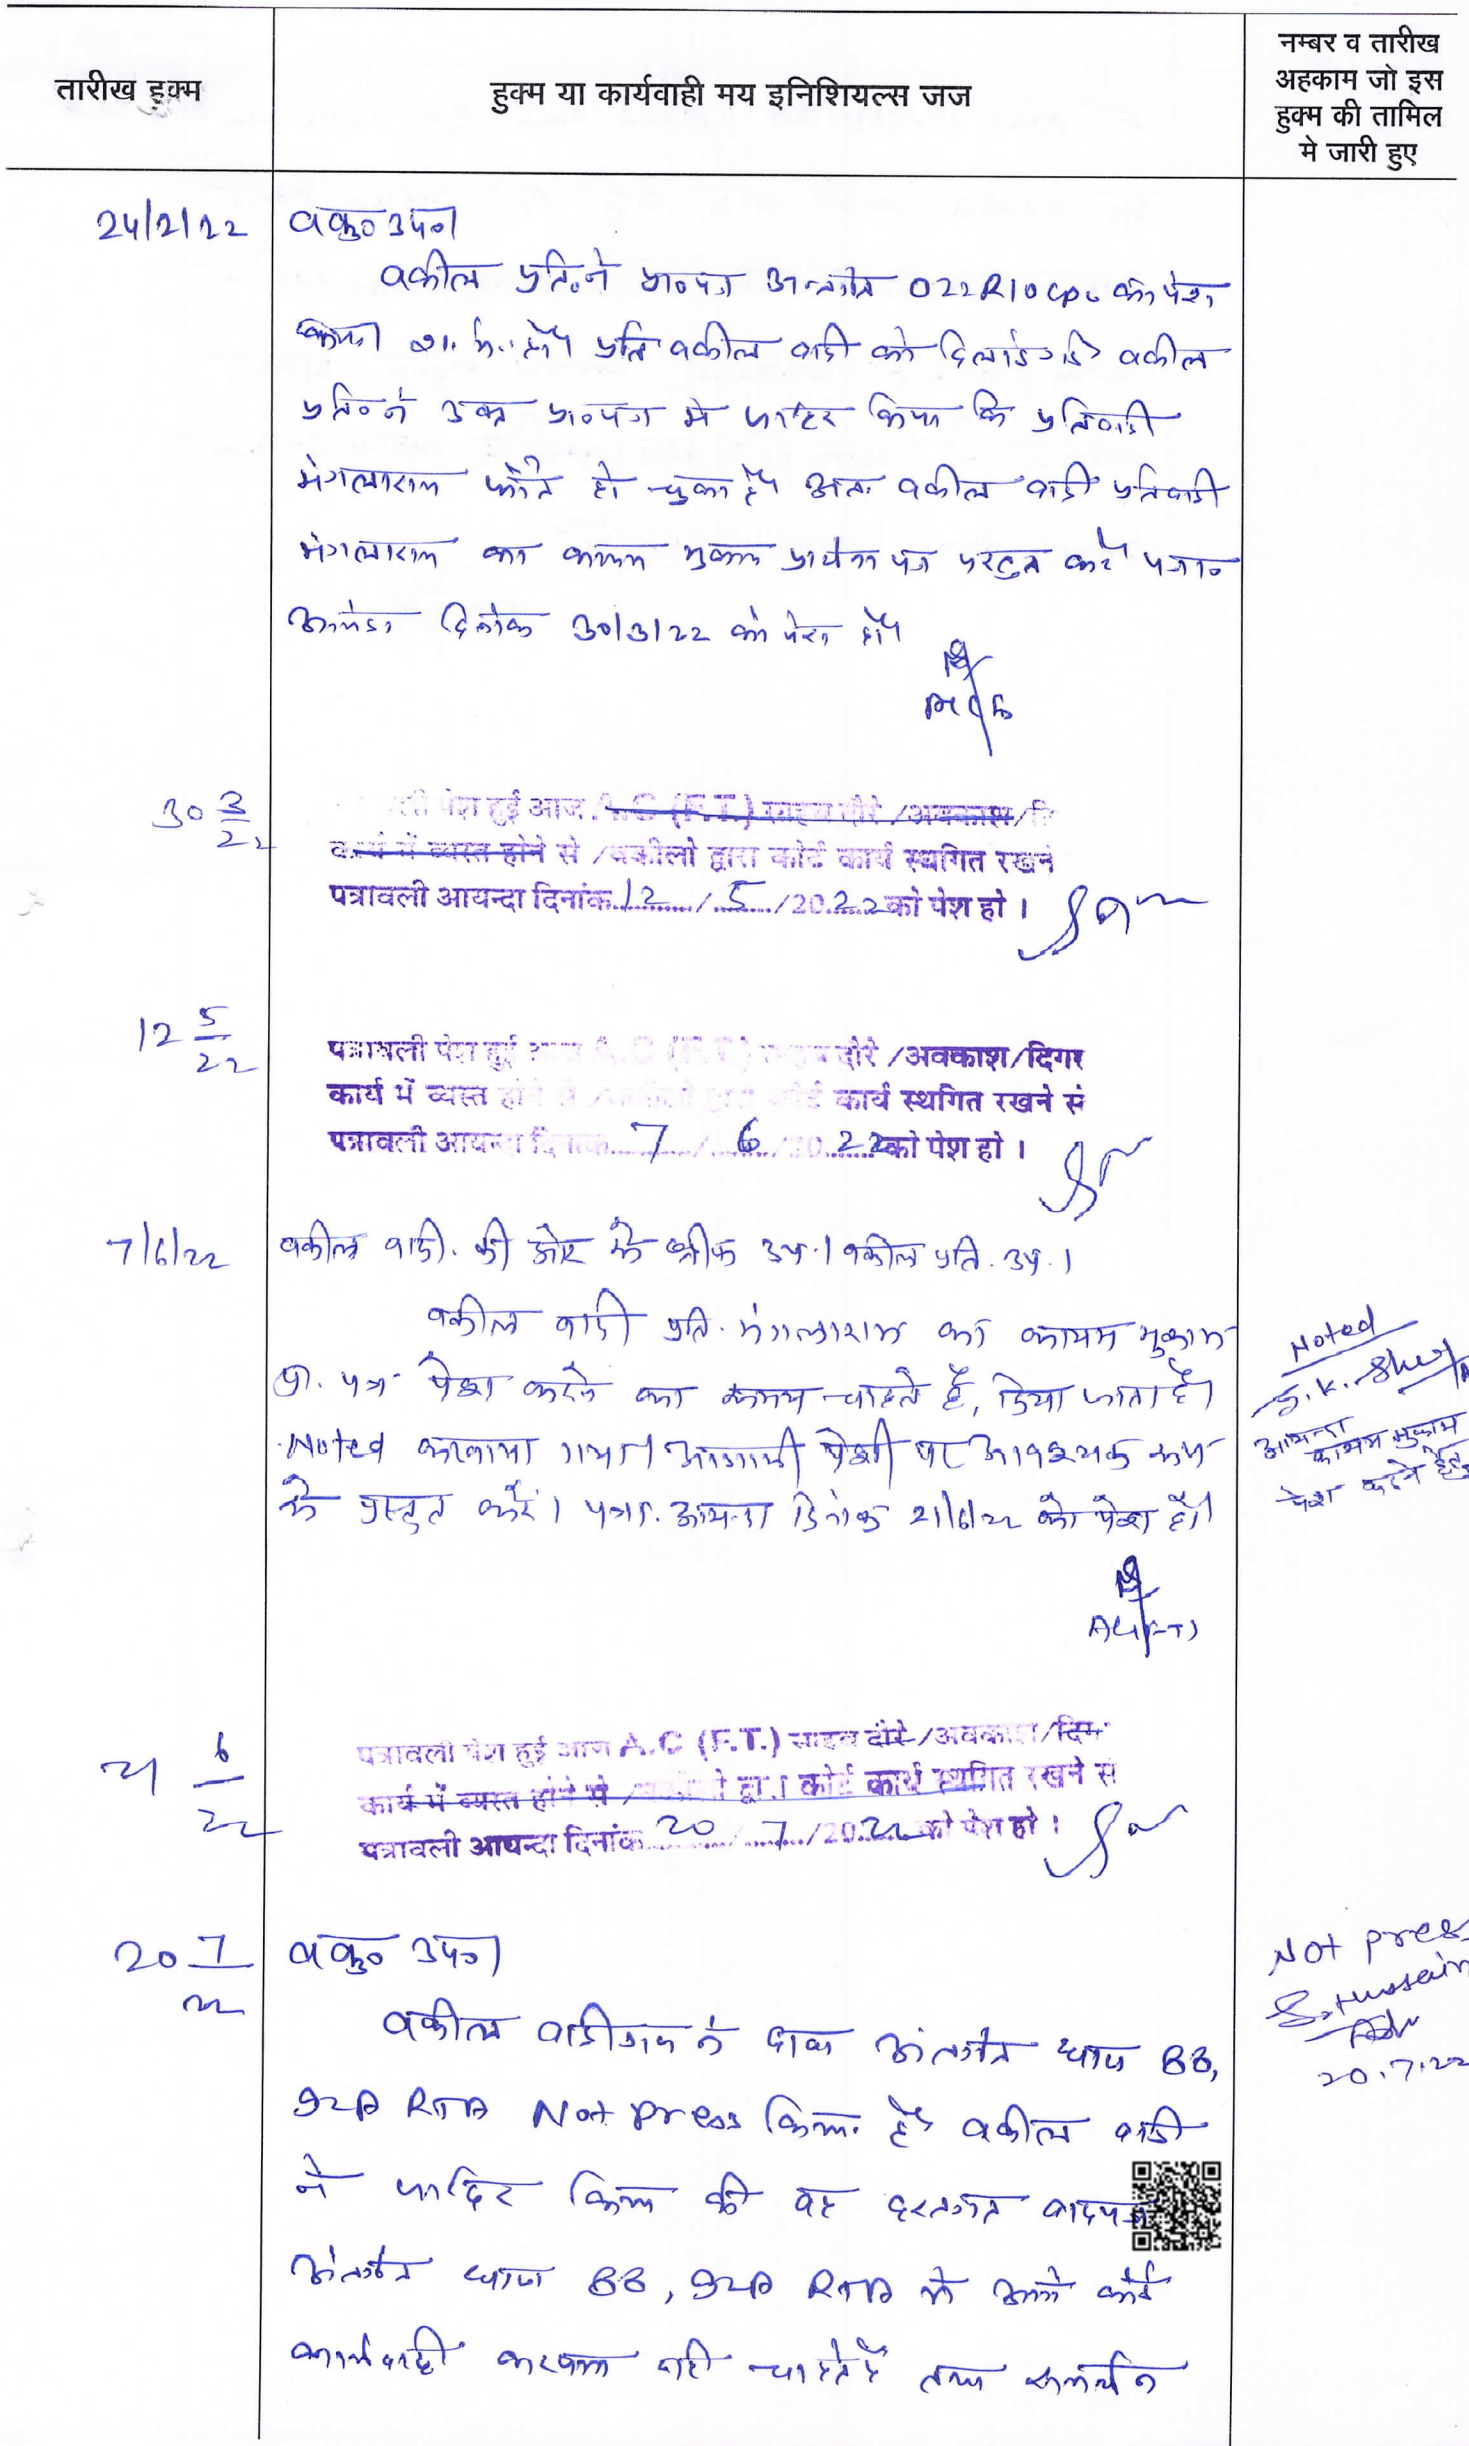 तारीख हुक्म
हुक्म या कार्यवाही मय इनिशियल्स जज
नम्बर व तारीख
अहकाम जो इस
हुक्म की तामिल
मे जारी हुए
24/2/22
वकु० उप०।
वकील प्रति०ने प्रा०पत्र अन्तर्गत O22R10CPC का पेश
किया। प्रति वकील वादी को दिलाई गई वकील
प्रति०ने उक्त प्रा०पत्र मे जाहिर किया कि प्रतिवादी
मंगलाराम फौत हो चुका है। अतः वकील वादी प्रतिवादी
मंगलाराम का कायम मुकाम प्रार्थना पत्र प्रस्तुत करें। पत्रा०
आयंदा दिनांक 30/3/22 को पेश हो।
30 3/22
पेश हुई आज A.C (F.T.) साहब दौरे /अवकाश/
कार्य में व्यस्त होने से /वकीलो द्वारा कोर्ट कार्य स्थगित रखने
पत्रावली आयन्दा दिनांक 12 / 5 /2022 को पेश हो ।
12 5/22
पत्रावली पेश हुई आज A.C (F.T.) साहब दौरे /अवकाश/दिगर
कार्य में व्यस्त होने से /वकीलो द्वारा कोर्ट कार्य स्थगित रखने से
पत्रावली आयन्दा दिनांक 7 / 6 /2022 को पेश हो ।
7/6/22
वकील वादी. की ओर से ब्रीफ उप.। वकील प्रति. उप.।
वकील वादी प्रति. मंगलाराम का कायम मुकाम
प्रा. पत्र पेश करने का समय चाहते हैं, दिया जाता है।
Noted करवाया गया। आगामी पेशी पर आवश्यक रूप
से प्रस्तुत करें। पत्रा. आयन्दा दिनांक 21/6/22 को पेश हो।
Noted
S.K.
आयन्दा
कायम मुकाम
पेश करने हेतु
21 6/22
पत्रावली पेश हुई आज A.C (F.T.) साहब दौरे /अवकाश/दिगर
कार्य में व्यस्त होने से /वकीलो द्वारा कोर्ट कार्य स्थगित रखने से
पत्रावली आयन्दा दिनांक 20 / 7 /2022 को पेश हो ।
20 7/22
वकु० उप०।
वकील वादीगण ने दावा अंतर्गत धारा 88,
92A RTA Not press किया है। वकील वादी
ने जाहिर किया की वह हस्तगत वादपत्र
अंतर्गत धारा 88, 92A RTA मे आगे कोई
कार्यवाही करवाना नही चाहते है तथा
Not press
S. Hussain
Adv
20.7.22